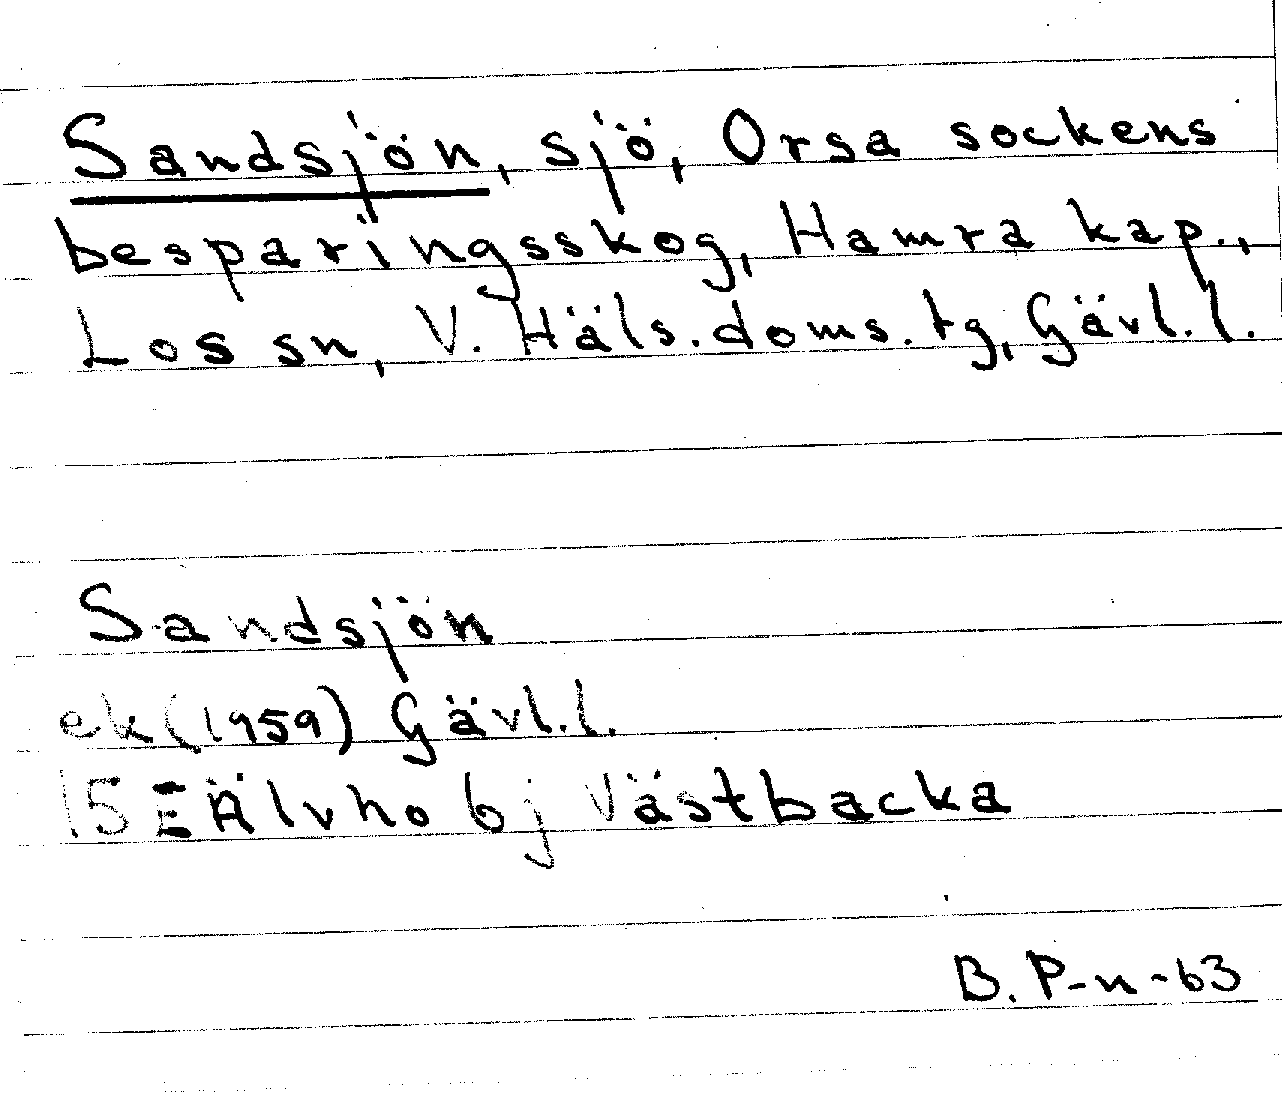 Sandsjön, sjö, Orsa sockens
besparingsskog, Hamra kap.,
Los sn, V. Häls. doms. tg, Gävl. l.
Sandsjön
ek (1959) Gävl. l.
15E Älvho 6j Västbacka
B. P-n -63